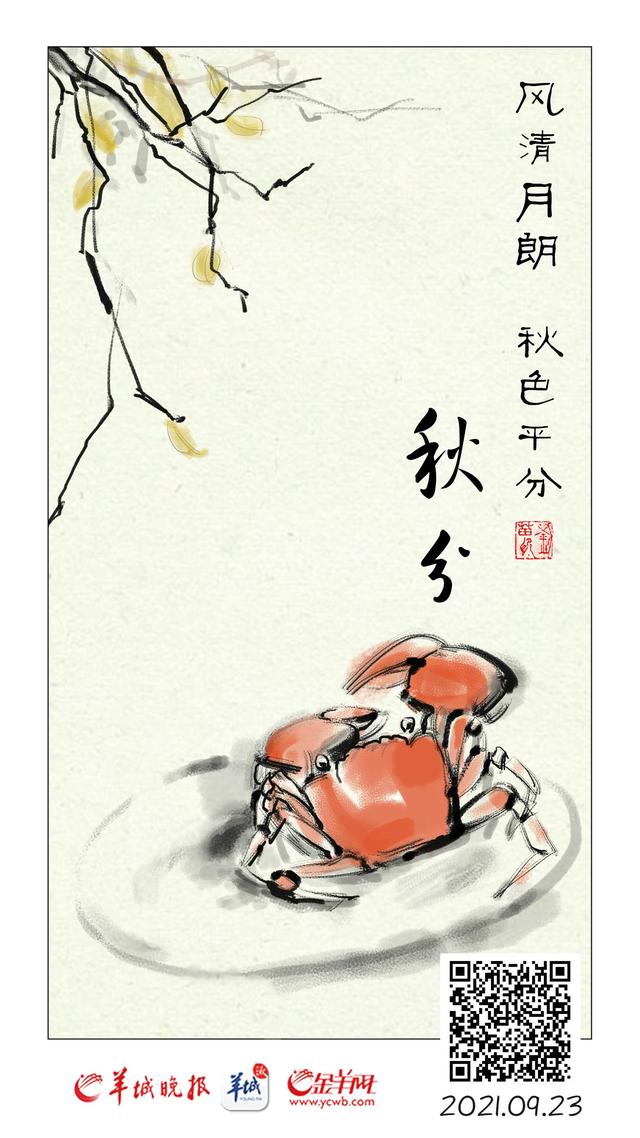 风清月朗 秋色平分
秋分
羊城晚报
羊城派
YOUNG PAI
金羊网
www.ycwb.com
2021.09.23